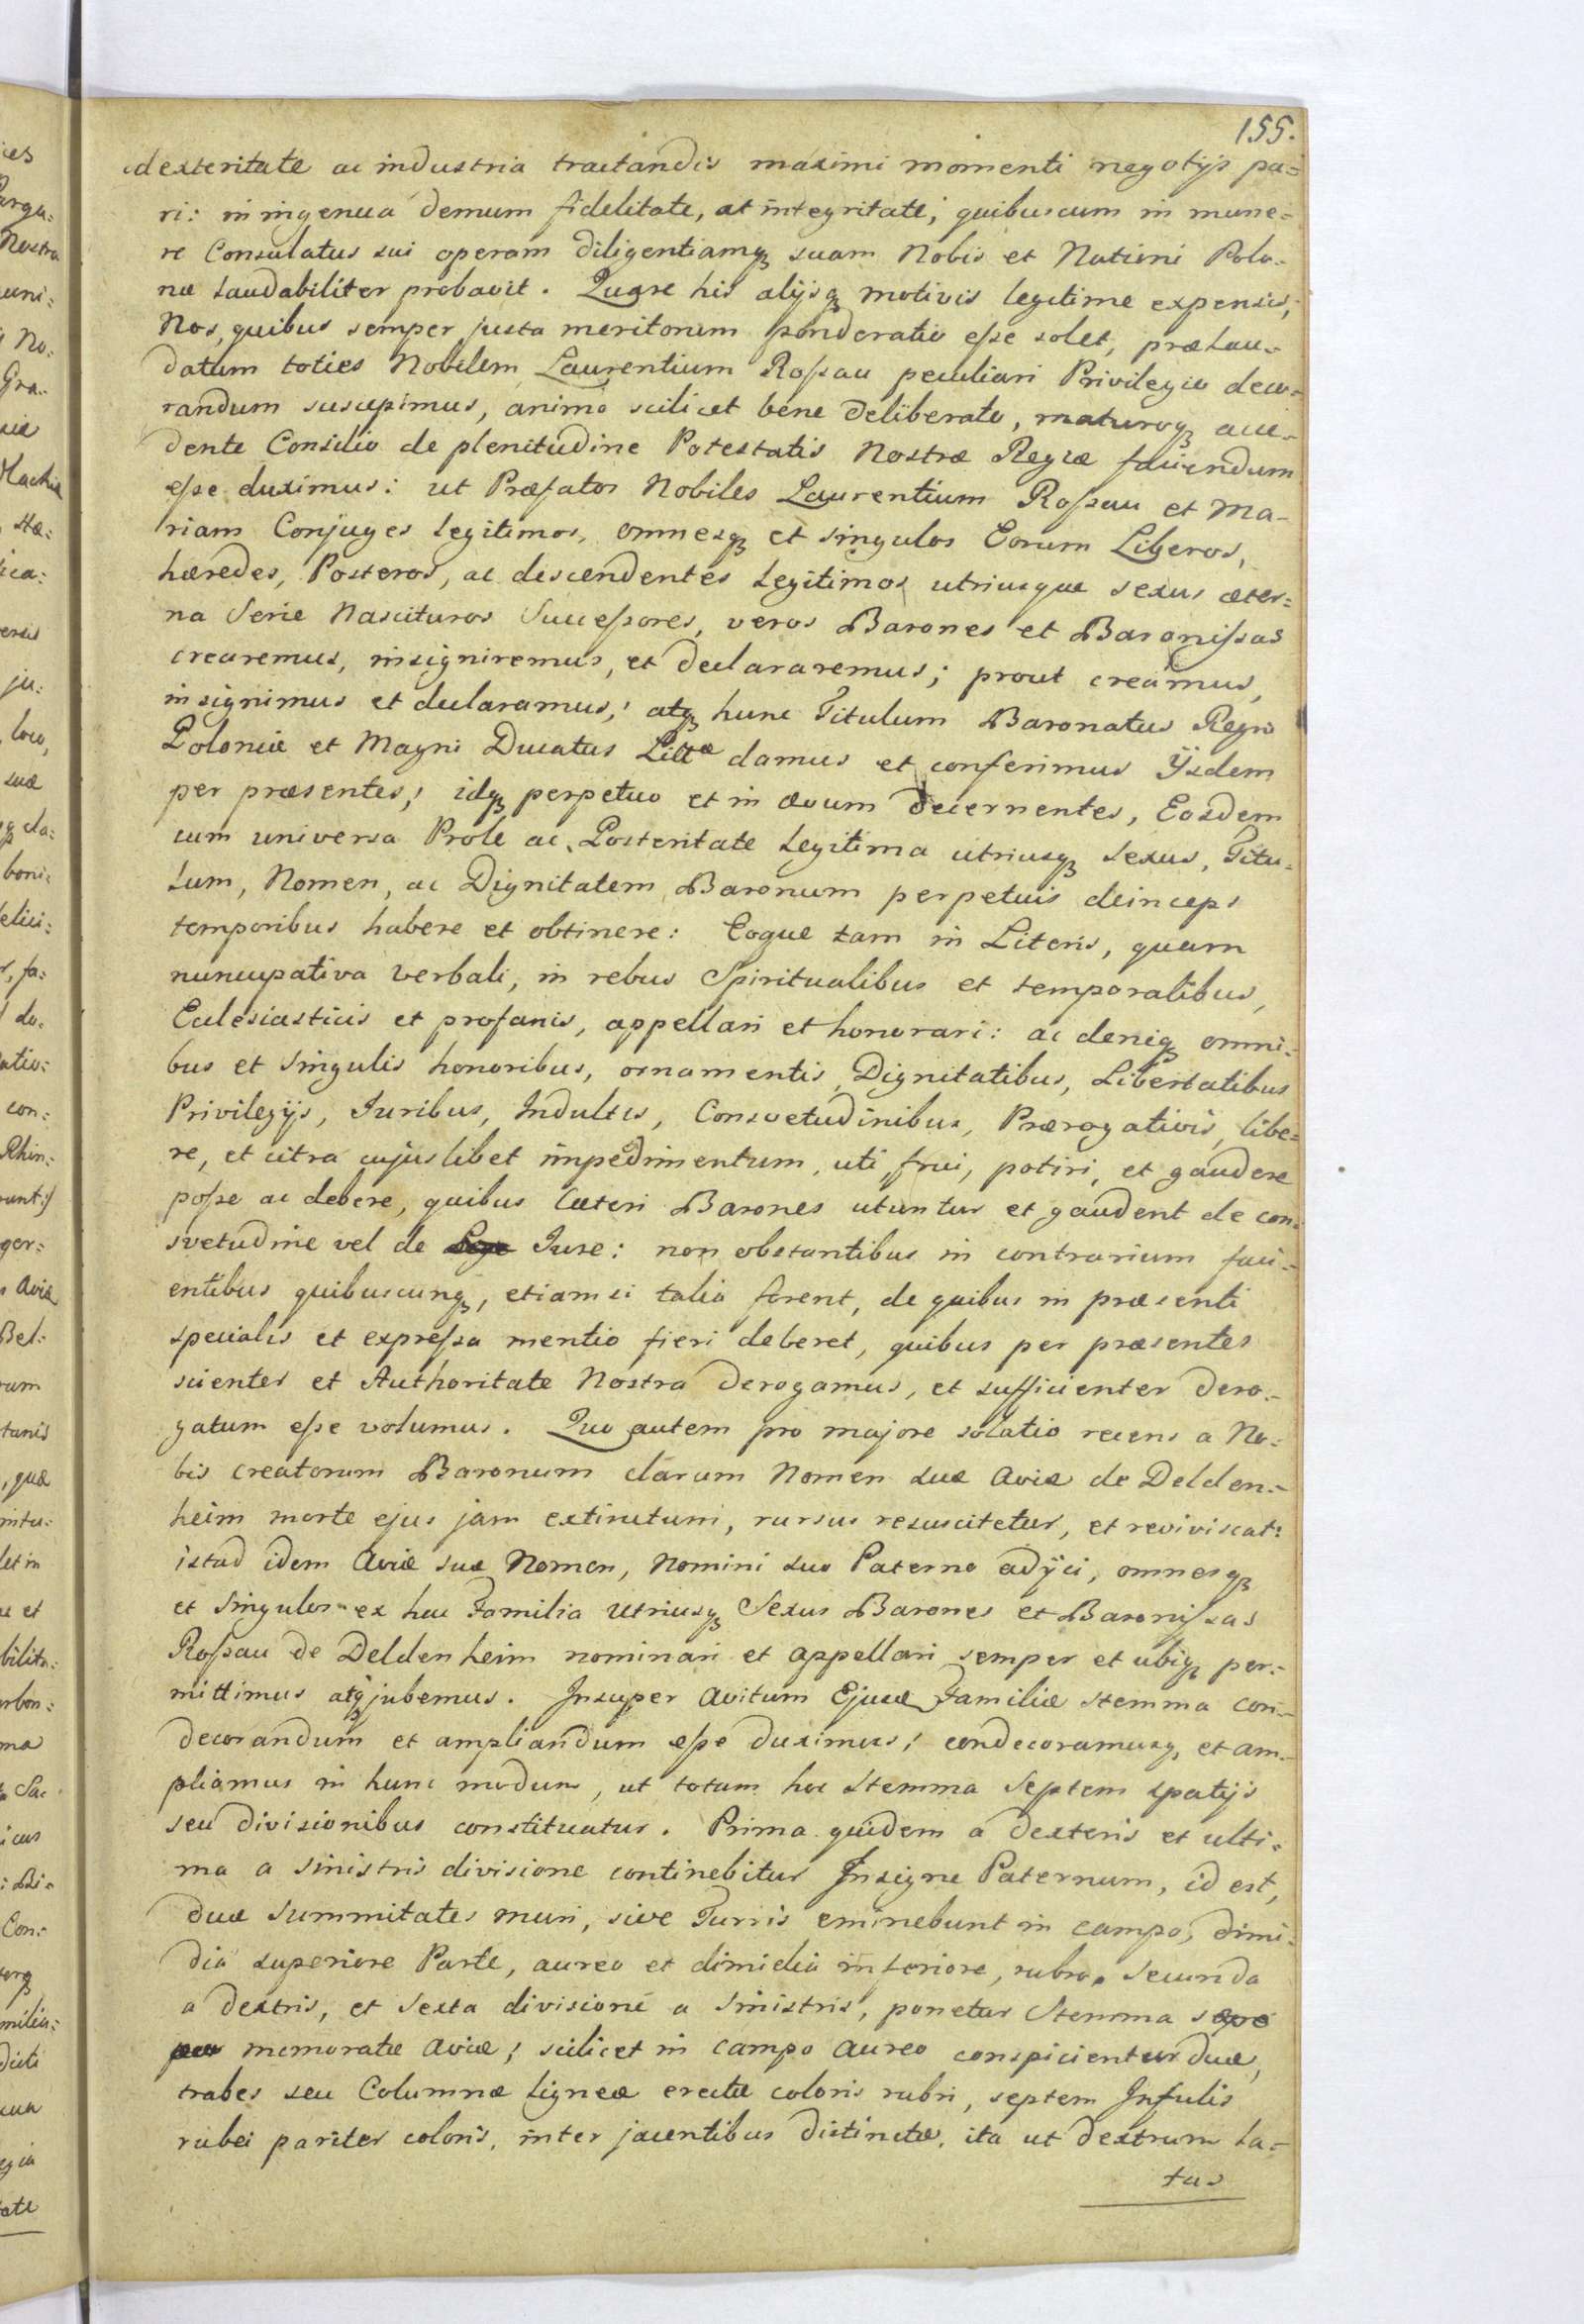 155.
dexteritate ac industria tractandis maximi momenti negotijs pa=
ri: in ingenua demum fidelitate, at integritate; quibuscum in mune=
re Consulatus sui operam diligentiamq3 suam Nobis et Nationi Polo=
næ laudabiliter probavit. Quare his alijsq3 motivis legitime expensis,
Nos, quibus semper justa meritorum ponderatio eſse solet, prælau=
datum toties Nobilem Laurentium Roſsau peculiari Privilegio deco=
randum suscepimus, animo scilicet bene deliberato, maturoq3 acce=
dente Consilio de plenitudine Potestatis Nostræ Regiæ faciendum
eſse duximus: ut Præfatos Nobiles Laurentium Roſsau et Ma=
riam Conjuges legitimos, omnesq3 et singulos Eorum Liberos,
hæredes, Posteros, ac descendentes legitimos utriusque sexus æter=
na Serie Nascituros Succeſsores, veros Barones et Baroniſsas
crearemus, insigniremus, et declararemus; prout creamus,
insignimus et declaramus; atq3 hunc Titulum Baronatus Regni
Poloniæ et Magni Ducatus Littæ damus et conferimus Ijsdem
per præsentes; idq3 perpetuo et in ævum decernentes, Eosdem
cum universa Prole ac Posteritate legitima utriusq3 sexus, Titu=
lum, Nomen, ac Dignitatem Baronum perpetuis deinceps
temporibus habere et obtinere: Eoque tam in Literis, quam
nuncupativa verbali, in rebus Spiritualibus et temporalibus,
Ecclesiasticis et profanis, appellari et honorari: ac deniq3 omni=
bus et singulis honoribus, ornamentis, Dignitatibus, Libertatibus
Privilegijs, Juribus, Indultis, Consvetudinibus, Prærogativis, libe=
re, et citra cujuslibet impedimentum, uti, frui, potiri, et gaudere
poſse ac debere, quibus Cæteri Barones utuntur et gaudent de con=
svetudine vel de Lege Jure: non obstantibus in contrarium faci=
entibus quibuscunq3, etiamsi talia forent, de quibus in præsenti
specialis et expreſsa mentio fieri deberet, quibus per præsentes
scienter et Authoritate Nostra derogamus, et sufficienter dero=
gatum eſse volumus. Quo autem pro majore solatio recens a No=
bis creatorum Baronum clarum Nomen suæ Aviæ de Delden=
heim morte ejus jam extinctum, rursus resuscitetur, et reviviscat:
istud idem Aviæ suæ Nomen, Nomini suo Paterno adijci, omnesq3
et singulos ex hac Familia utriusq3 Sexus Barones et Baroniſsas
Roſsau de Deldenheim nominari et appellari semper et ubiq3 per=
mittimus atq3 jubemus. Insuper Avitum Ejusd Familiæ stemma con=
decorandum et ampliandum eſse duximus; condecoramusq3, et am=
pliamus in hunc modum, ut totum hoc stemma septem spatijs
seu divisionibus constituatur. Prima quidem a dexteris et ulti=
ma a sinistris divisione continebitur Insigne Paternum, id est,
duæ summitates muri, sive Turris eminebunt in campo, dimi=
dia superiore Parte, aureo et dimidia inferiore, rubro. Secunda
a dextris, et sexta divisione a sinistris, ponetur Stemma sæpe
memoratæ Aviæ; scilicet in campo aureo conspicientur duæ,
trabes seu Columnæ ligneæ erectæ coloris rubri, septem Infulis
rubei pariter coloris, inter jacentibus distinctæ, ita ut dextrum la=
tus